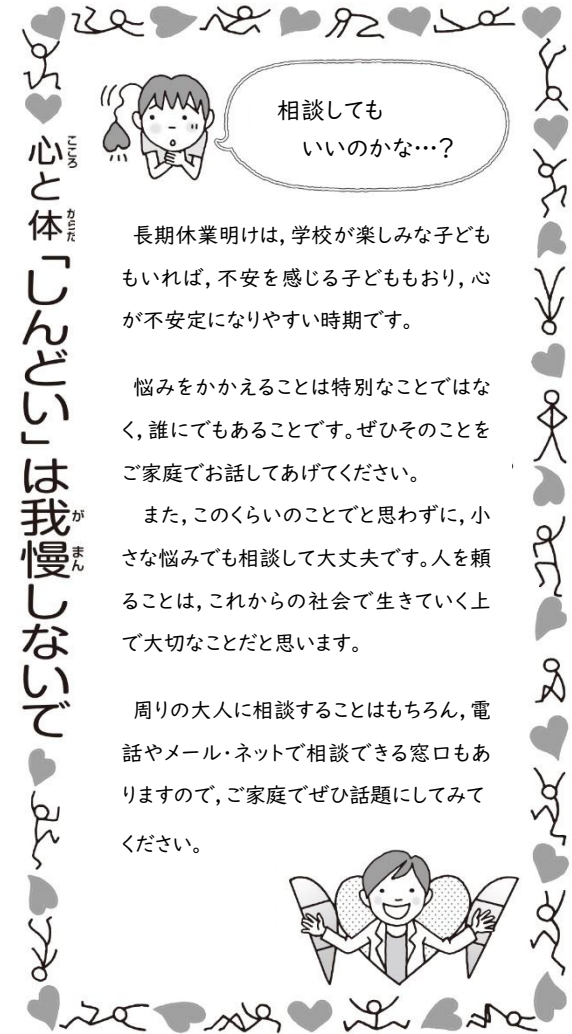 心と体「しんどい」は我慢しないで
こころ
からだ
がまん
相談しても
いいのかな…？
長期休業明けは，学校が楽しみな子ども
もいれば，不安を感じる子どももおり，心
が不安定になりやすい時期です。
悩みをかかえることは特別なことではな
く，誰にでもあることです。ぜひそのことを
ご家庭でお話してあげてください。
また，このくらいのことでと思わずに，小
さな悩みでも相談して大丈夫です。人を頼
ることは，これからの社会で生きていく上
で大切なことだと思います。
周りの大人に相談することはもちろん，電
話やメール・ネットで相談できる窓口もあ
りますので，ご家庭でぜひ話題にしてみて
ください。